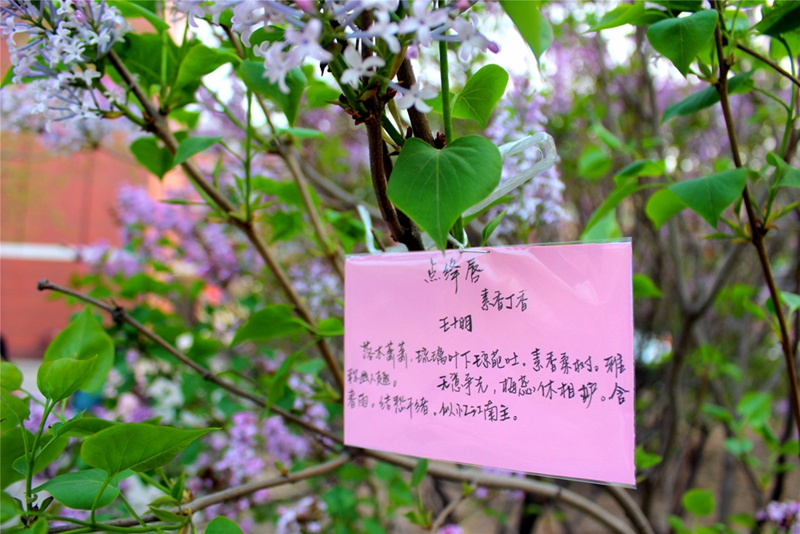 点绛唇
素香丁香
王十朋
落木萧萧,琉璃叶下琼葩吐。素香柔树。雅
称幽人趣。 无意争先,梅蕊休相妒。含
春雨,结愁千绪,似忆江南主。